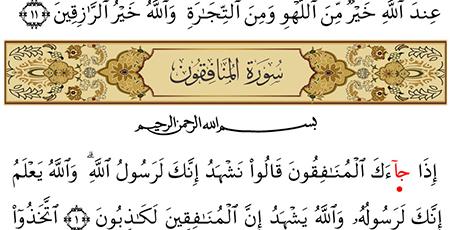 عِندَ ٱللَّهِ خَيْرٌ مِّنَ ٱللَّهْوِ وَمِنَ ٱلتِّجَٰرَةِ ۚ وَٱللَّهُ خَيْرُ ٱلرَّٰزِقِينَ ﴿١١﴾
سُورَةُ المُنَافِقُون
بسم الله الرحمن الرحيم
إِذَا جَآءَكَ ٱلْمُنَٰفِقُونَ قَالُوا۟ نَشْهَدُ إِنَّكَ لَرَسُولُ ٱللَّهِ ۗ وَٱللَّهُ يَعْلَمُ
إِنَّكَ لَرَسُولُهُۥ وَٱللَّهُ يَشْهَدُ إِنَّ ٱلْمُنَٰفِقِينَ لَكَٰذِبُونَ ﴿١﴾ ٱتَّخَذُوٓا۟